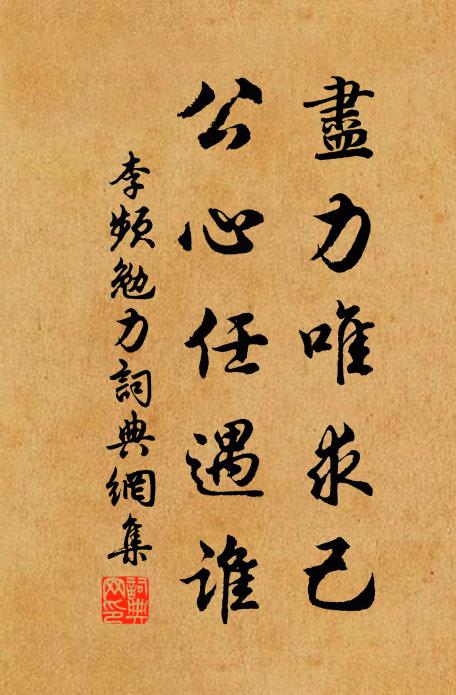 盡力唯求己
公心任遇誰
李頻勉力詞典網集
詞典網印